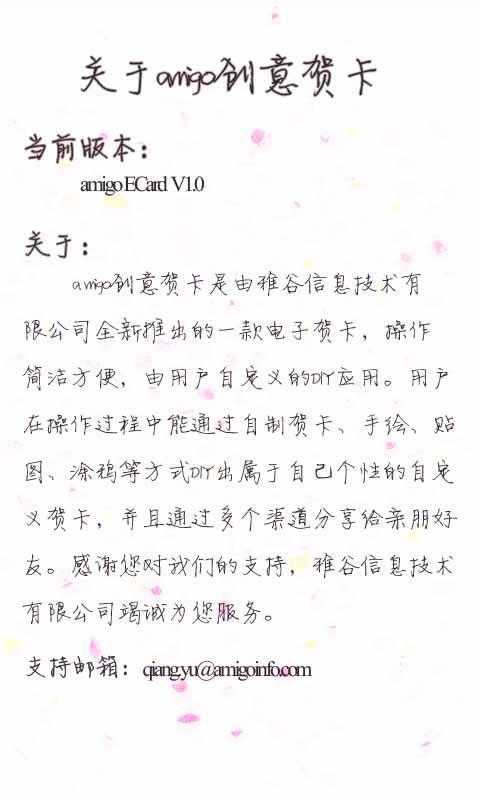 关于amigo创意贺卡
当前版本：
amigo ECard V1.0
关于：
amigo创意贺卡是由雅谷信息技术有
限公司全新推出的一款电子贺卡，操作
简洁方便，由用户自定义的DIY应用。用户
在操作过程中能通过自制贺卡、手绘、贴
图、涂鸦等方式DIY出属于自己个性的自定
义贺卡，并且通过多个渠道分享给亲朋好
友。感谢您对我们的支持，雅谷信息技术
有限公司竭诚为您服务。
支持邮箱：qiang.yu@amigoinfo.com